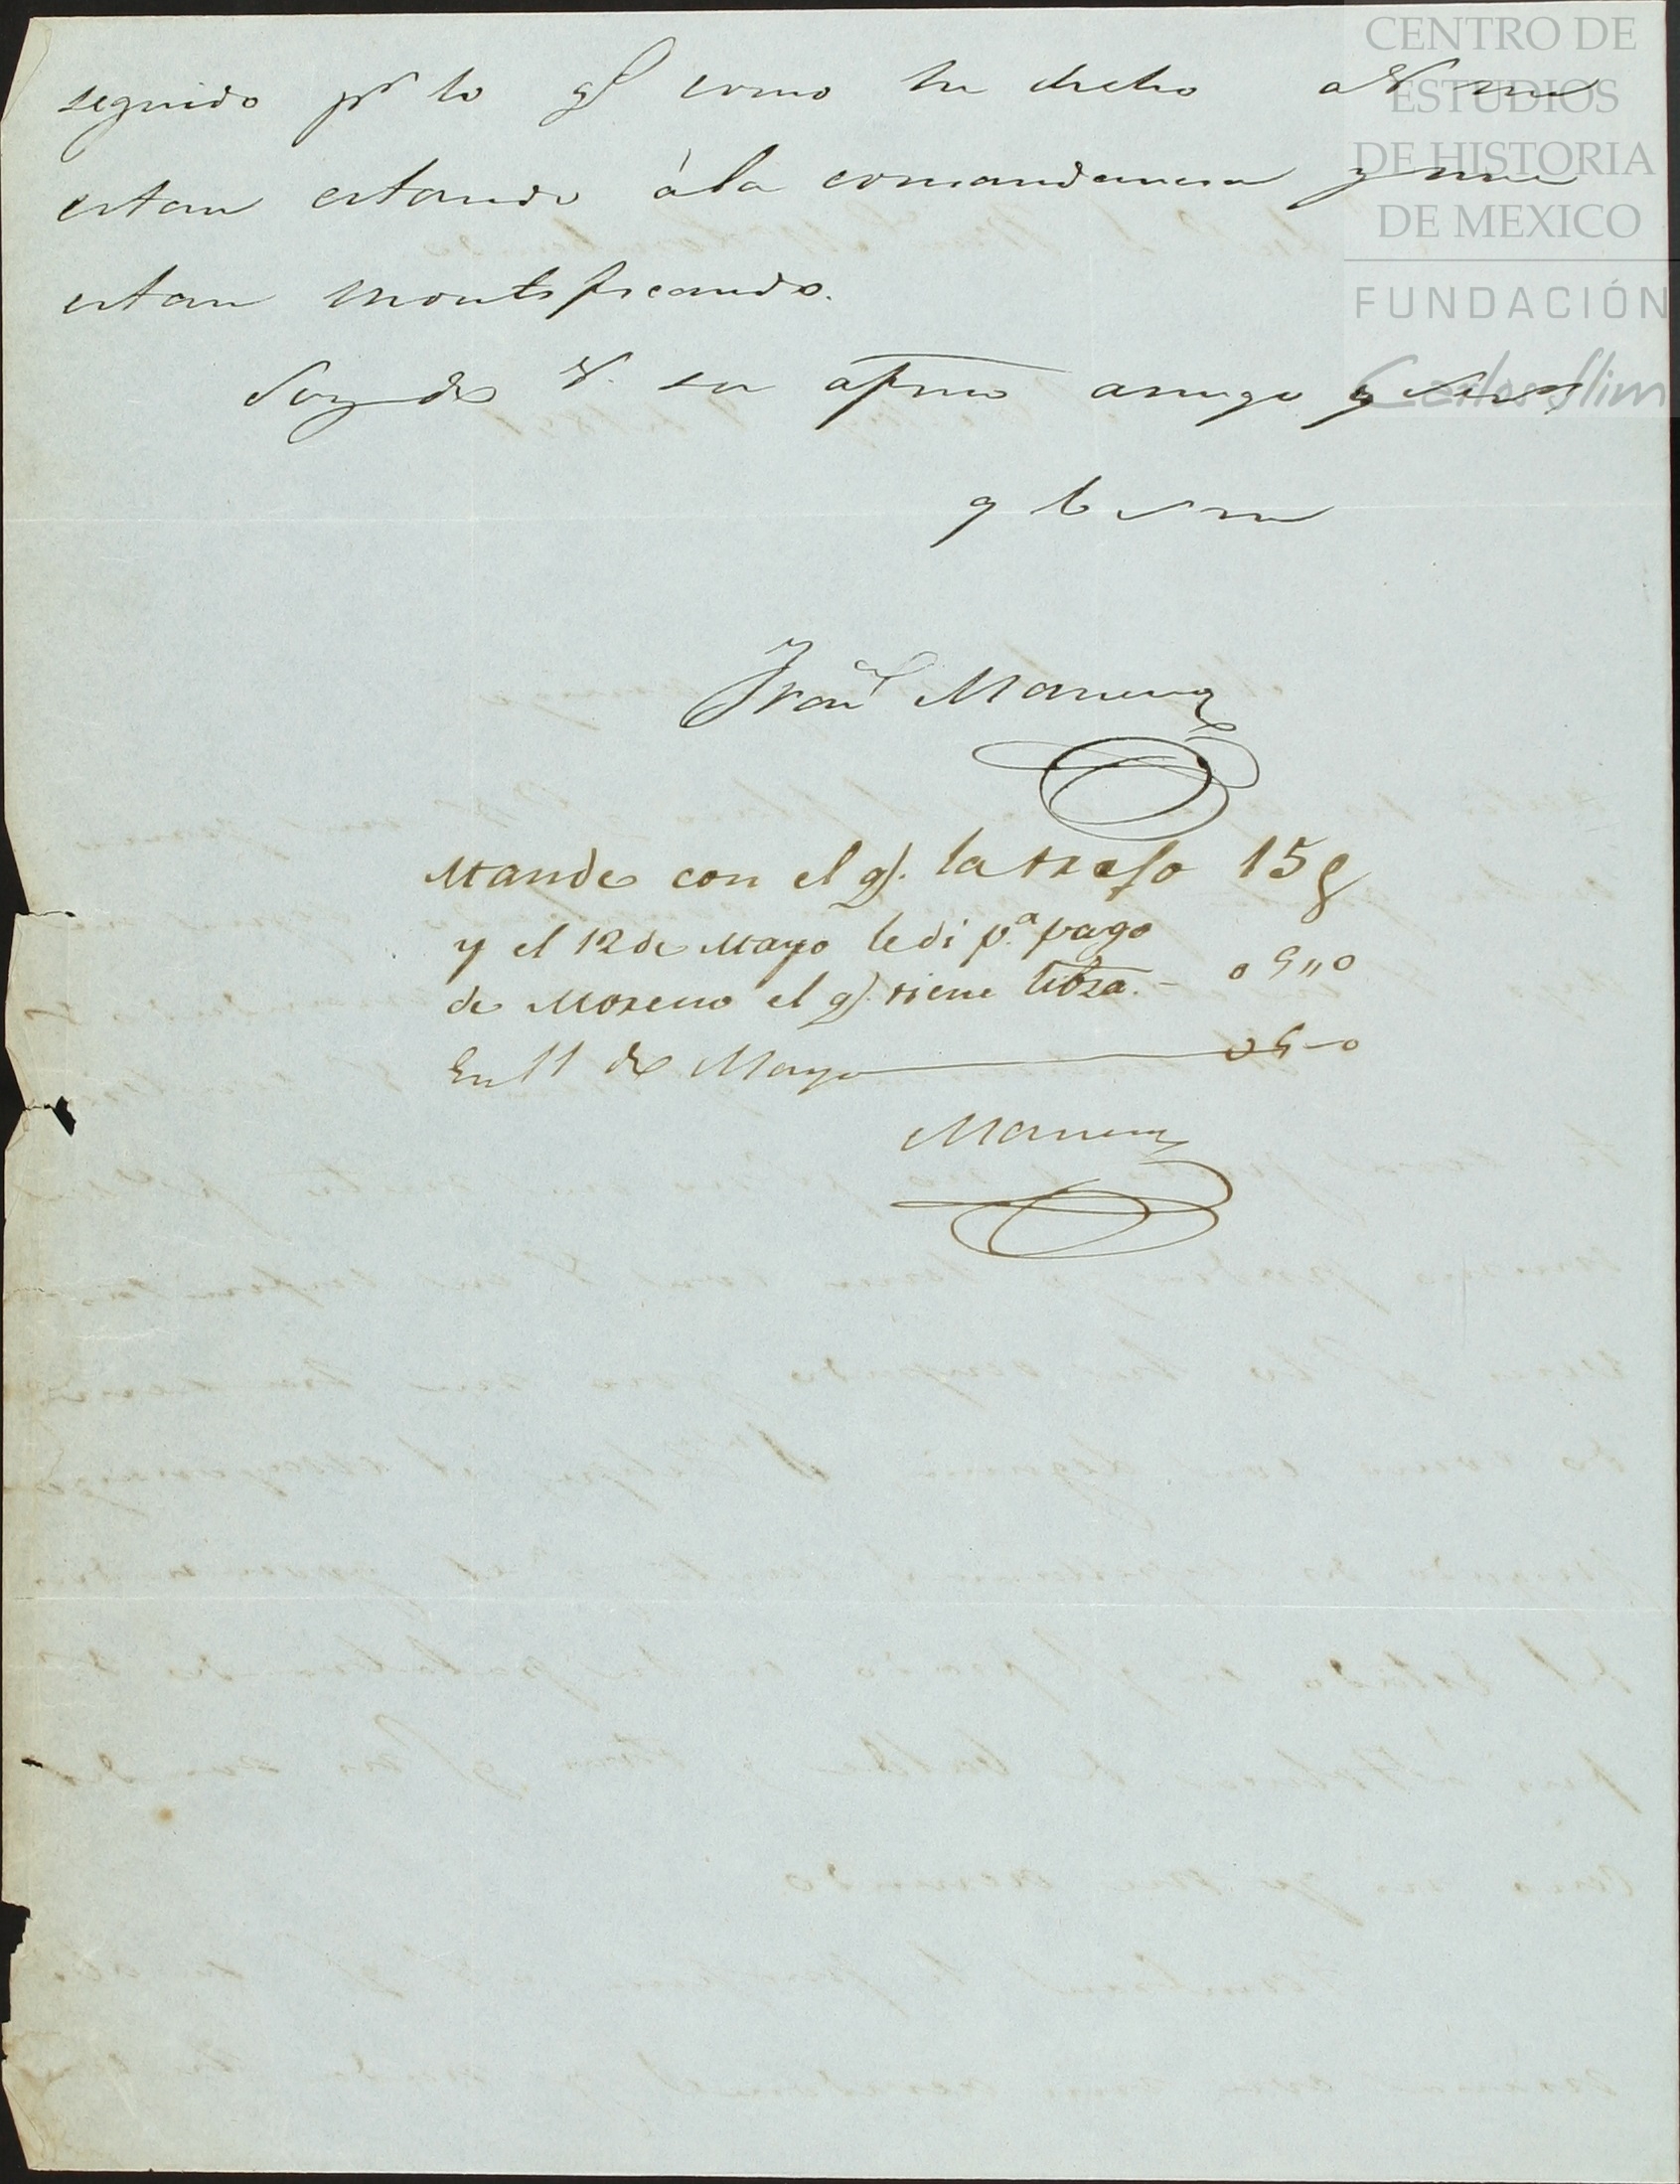 CENTRO DE
ESTUDIOS
DE HISTORIA
DE MEXICO
FUNDACIÓN
Carlos Slim
seguido pr lo ql como he dicho a V. me
estan citando á la comandancia y me
estan mortificando.
Soy de V. su afmo amigo y
q b s m
Franco
Mande con el q. la trajo 15 p
y el 12 de Mayo le di pa. pago
de Moreno el q. tiene libra. - 05,,0
En 11 de Mayo 05-0